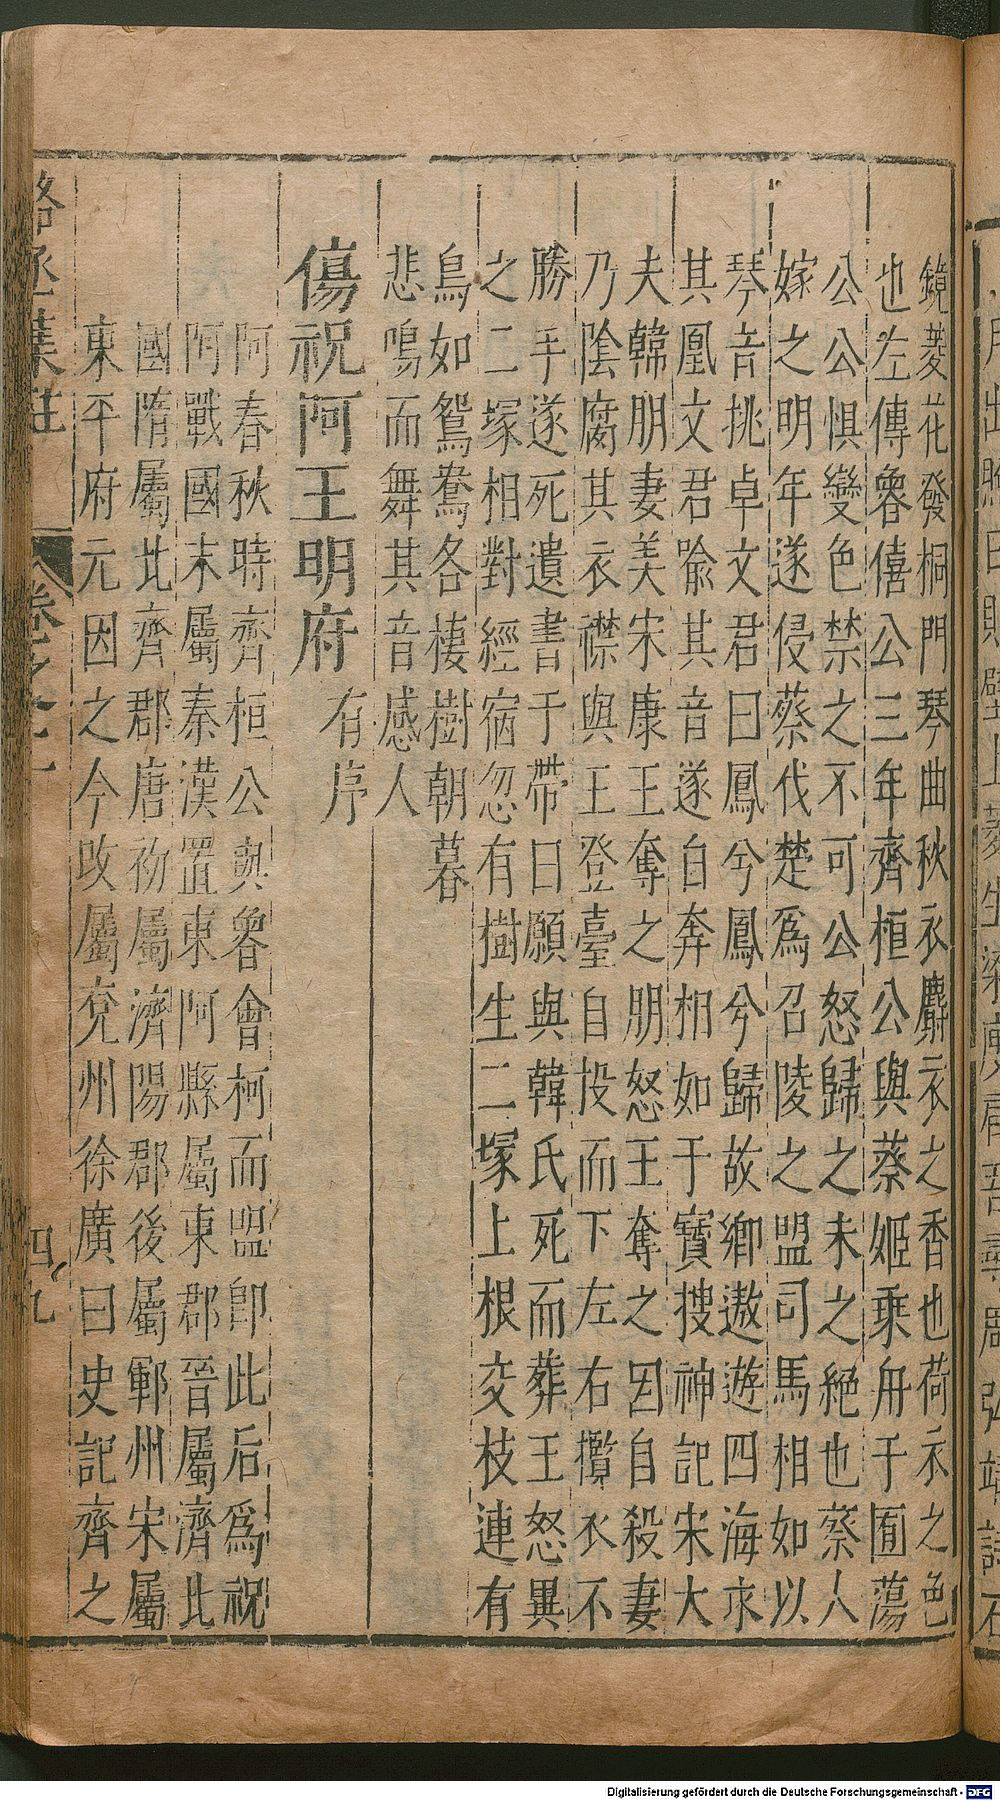 鏡菱花發桐門琴曲秋衣麝衣之香也荷衣之色
也左傳魯僖公三年齊桓公與蔡姬乗舟于囿蕩
公公惧變色禁之不可公怒歸之未之絶也蔡人
嫁之明年遂侵蔡伐楚爲召陵之盟司馬相如以
琴音挑卓文君曰鳳兮鳳兮歸故鄉遨遊四海求
其凰文君喻其音遂自奔相如于寳搜神記宋大
夫韓朋妻美宋康王奪之朋怒王奪之因自殺妻
乃陰腐其衣襟與王登臺自投而下左右攬衣不
勝手遂死遺書于帶曰願與韓氏死而葬王怒異
之二塚相對經宿忽有樹生二塚上根交枝連有
鳥如鴛鴦各棲樹朝暮
悲鳴而舞其音感人
傷祝阿王明府有序
阿春秋時齊桓公與魯會柯而盟卽此后爲祝
阿戰國末屬秦漢置東阿縣屬東郡晉屬濟北
國隋屬北齊郡唐初屬濟陽郡後屬鄆州宋屬
東平府元因之今改屬兗州徐廣曰史記齊之
駱丞集註 卷之一 四九
Digitalisierung gefördert durch die Deutsche Forschungsgemeinschaft - DFG